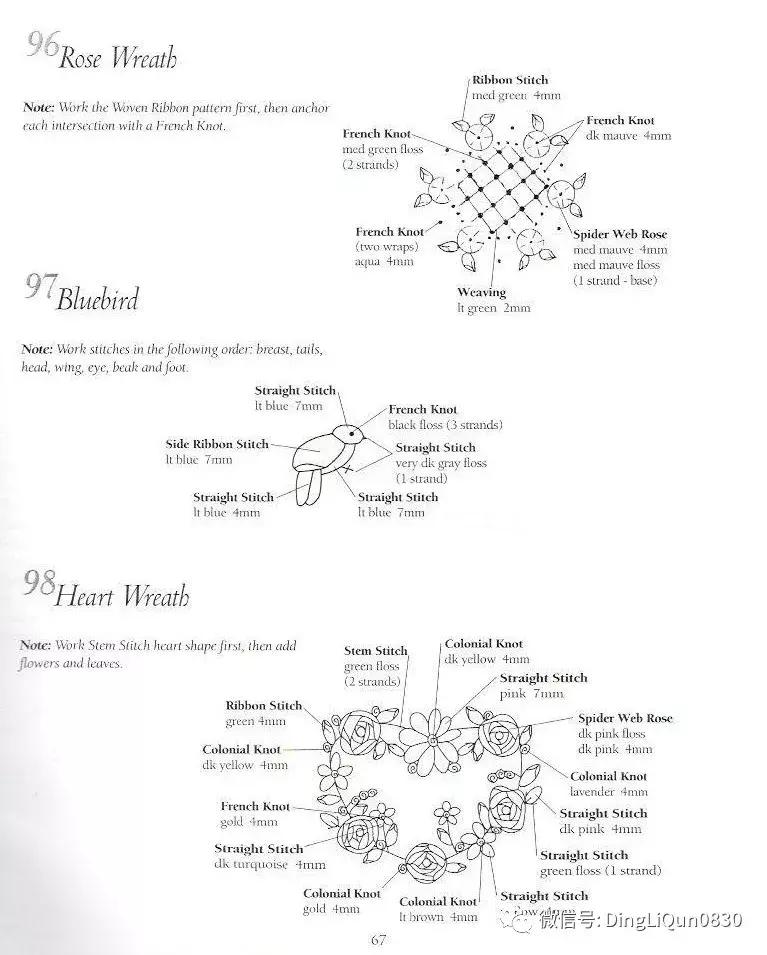 96 Rose Wreath
Note: Work the Woven Ribbon pattern first, then anchor
each intersection with a French Knot.
Ribbon Stitch
med green 4mm
French Knot
dk mauve 4mm
French Knot
med green floss
(2 strands)
French Knot
(two wraps)
aqua 4mm
Spider Web Rose
med mauve 4mm
med mauve floss
(1 strand - base)
Weaving
lt green 2mm
97 Bluebird
Note: Work stitches in the following order: breast, tails,
head, wing, eye, beak and foot.
Straight Stitch
lt blue 7mm
French Knot
black floss (3 strands)
Side Ribbon Stitch
lt blue 7mm
Straight Stitch
very dk gray floss
(1 strand)
Straight Stitch
lt blue 4mm
Straight Stitch
lt blue 7mm
98 Heart Wreath
Note: Work Stem Stitch heart shape first, then add
flowers and leaves.
Stem Stitch
green floss
(2 strands)
Colonial Knot
dk yellow 4mm
Straight Stitch
pink 7mm
Ribbon Stitch
green 4mm
Spider Web Rose
dk pink floss
dk pink 4mm
Colonial Knot
dk yellow 4mm
Colonial Knot
lavender 4mm
French Knot
gold 4mm
Straight Stitch
dk pink 4mm
Straight Stitch
dk turquoise 4mm
Straight Stitch
green floss (1 strand)
Colonial Knot
gold 4mm
Colonial Knot
lt brown 4mm
Straight Stitch
微信号: DingLiQun0830
67